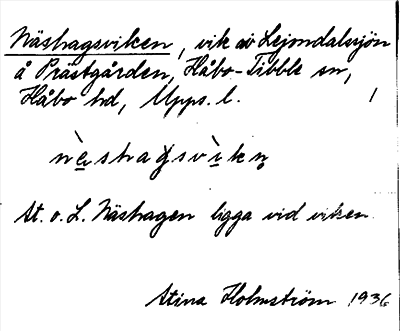 Näshagsviken, vik av Lejondalssjön
å Prästgården, Håbo-Tibble sn,
Håbo hd, Upps. l.
nè̱shagsvì̱kn̥
St. o. L. Näshagen ligga vid viken.
Stina Holmström 1936